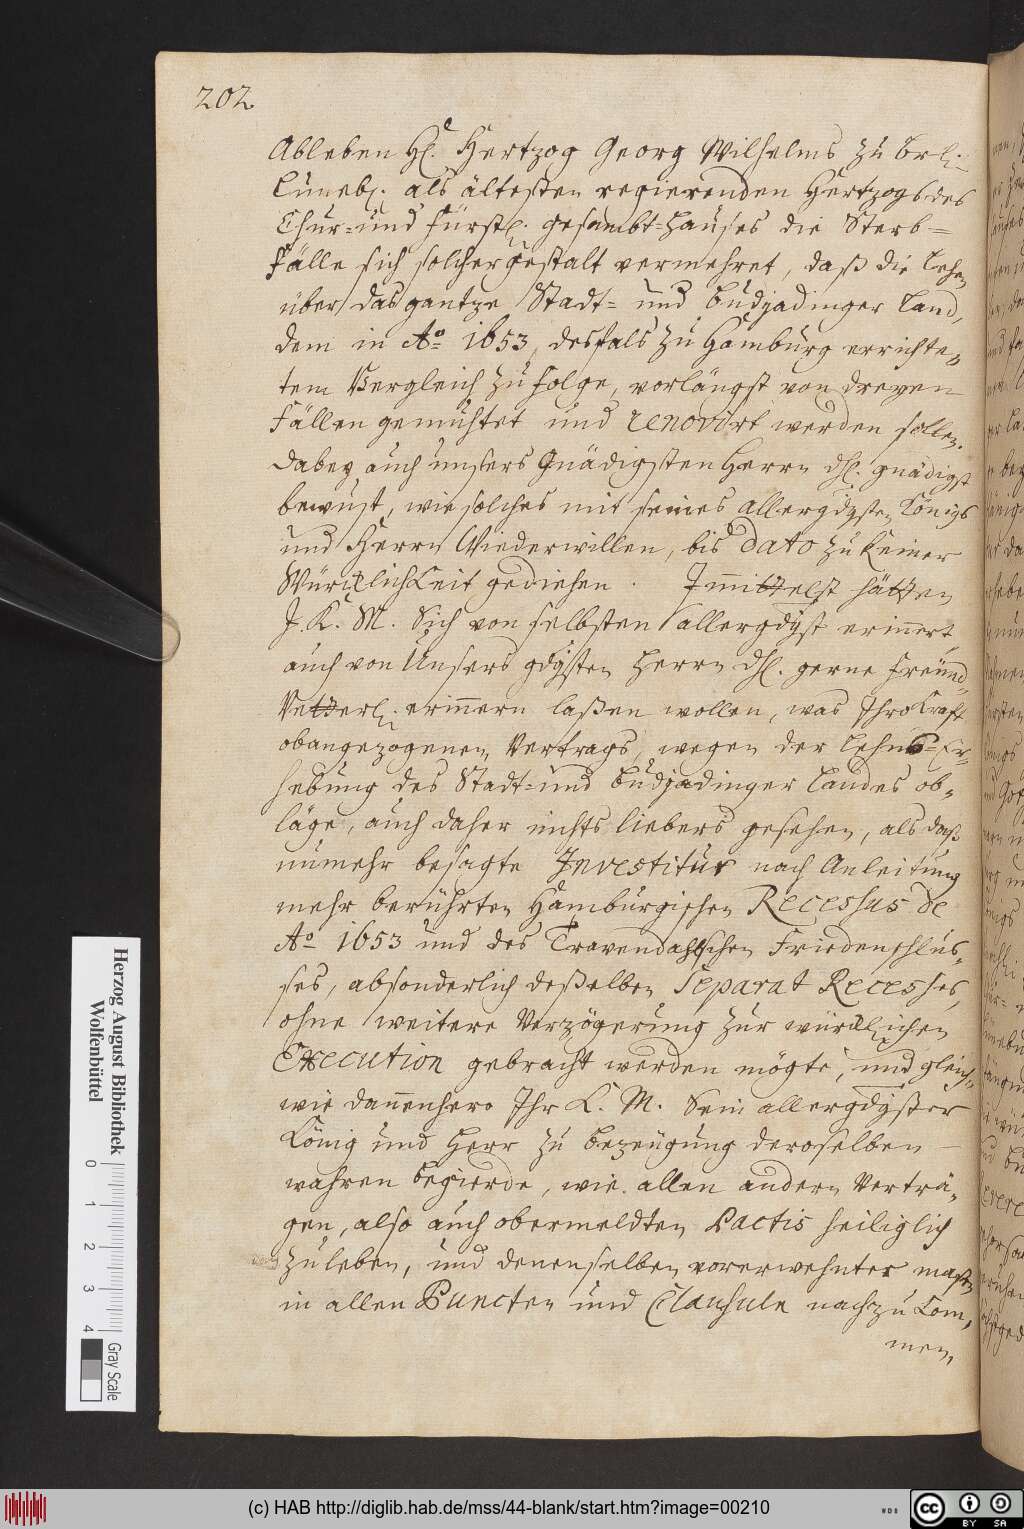 202.
Ableben H. Hertzog Georg Wilhelms zu Brl.
Lüneb. als ältesten regierenden Hertzogs des
Chur- und Fürstl. gesambt-Hauses die Sterb-
Fälle sich solchergestalt vermehret, daß die Lehen
über das gantze Stadt- und Budjadinger Land,
dem in Ao. 1653, desfals zu Hamburg errichte-
tem Vergleich zu folge, vorlängst von dreyen
Fällen gemuhtet und renovirt werden sollen.
Dabey auch unsers Gnädigsten Herrn dhl. gnädigst
bewust, wie solches mit seines allergdysten Königs
und Herrn Wiederwillen, bis dato zu keiner
Würcklichkeit gediehen. Immittelst hätten
J. K. M. Sich von selbsten allergdyst erinnert,
auch von Unsers gdysten Herrn dhl. gerne Freünd-
Vetterl. erinnern laßen wollen, was Ihro Krafft
obangezogenen Vertrags, wegen der Lehns-Er-
hebung des Stadt- und Budjadinger Landes ob-
läge, auch daher nichts liebers gesehen, als daß
numehr besagte Investitur nach Anleitung
mehr berührten Hamburgischen Recessus de
Ao. 1653 und des Travendahlschen Friedenschlus-
ses, absonderlich deßelben Separat Recesses,
ohne weitere Verzögerung zur würcklichen
Execution gebracht werden mögte, und gleich-
wie dannenhero Ihr K. M. Sein allergdyster
König und Herr zu bezeugung deroselben
wahren begierde, wie allen andern Verträ-
gen, also auch obermeldten Pactis heiliglich
zu leben, und denenselben vorerwehnter maßen
in allen Puncten und Clausuln nachzu kom-
men,
Herzog August Bibliothek
Wolfenbüttel
0 1 2 3 4
Gray Scale
(c) HAB http://diglib.hab.de/mss/44-blank/start.htm?image=00210
WDB
cc BY SA